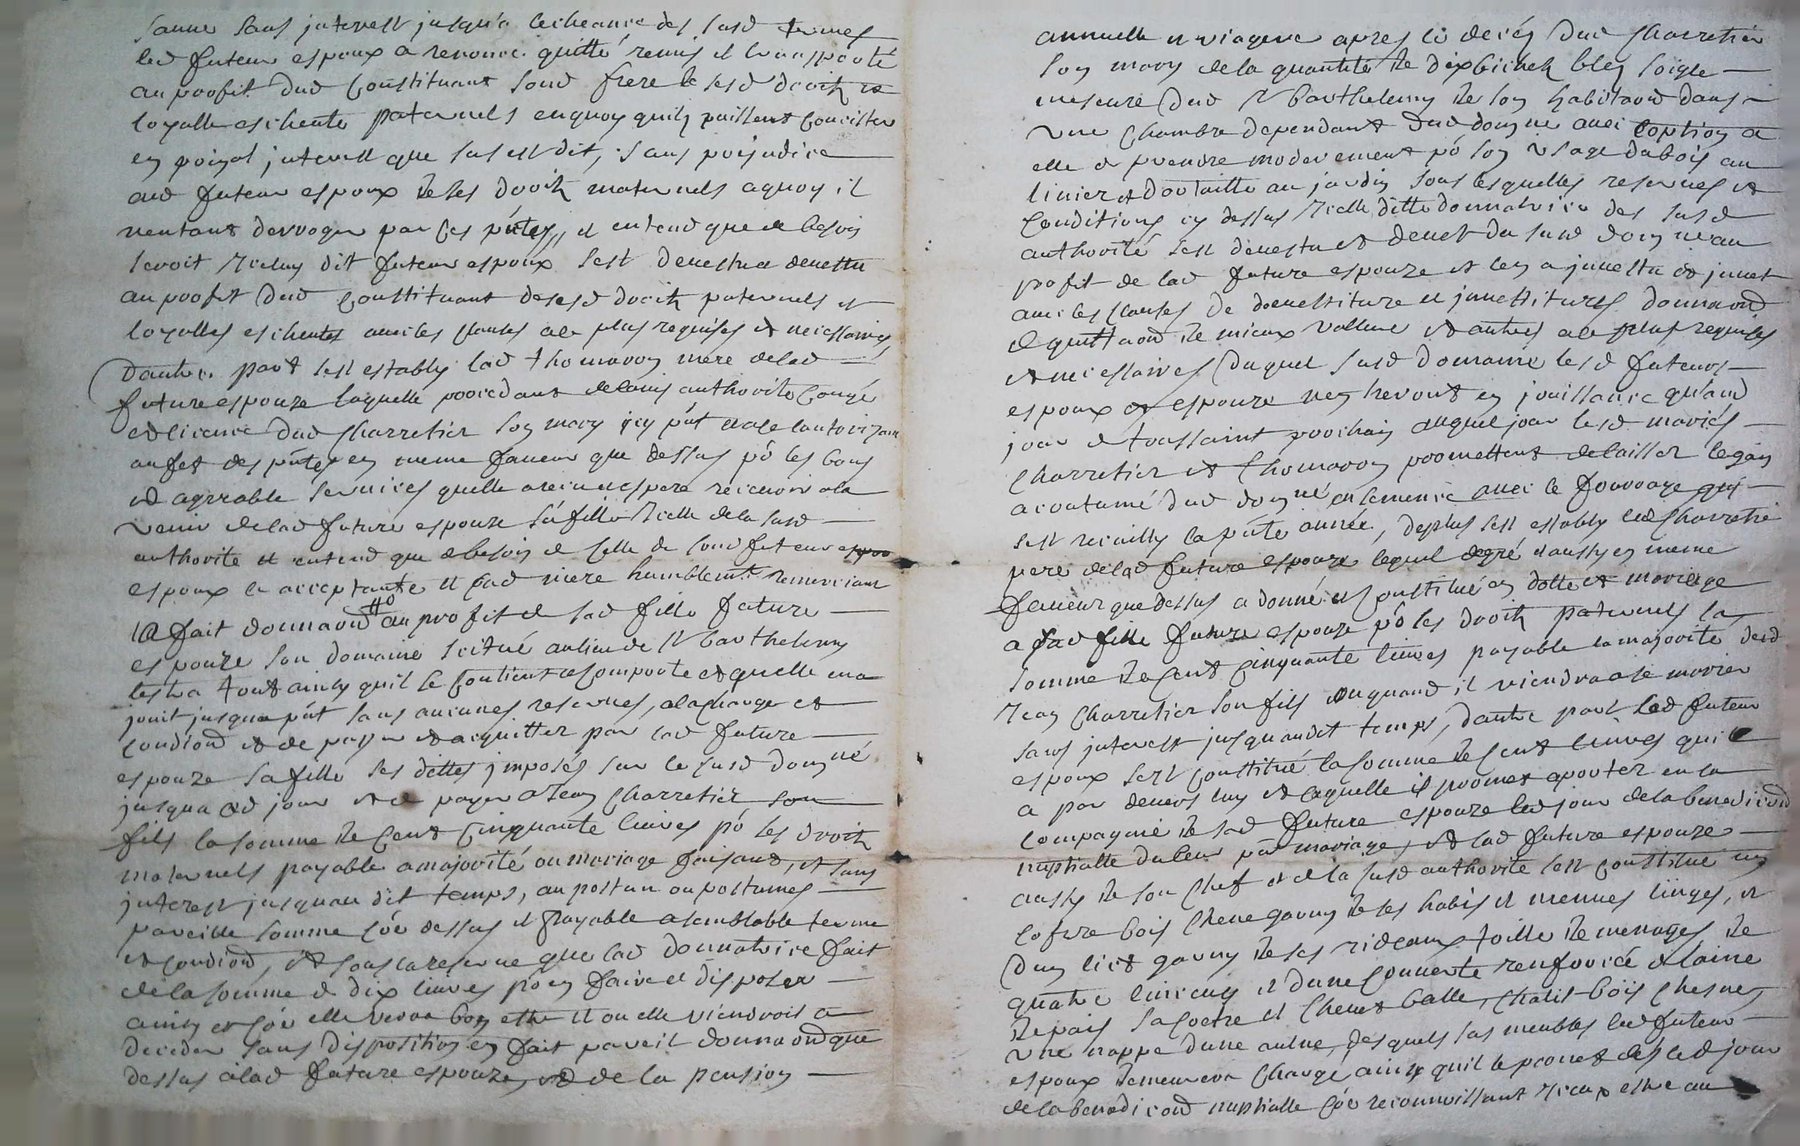 sans interest jusqua lecheance des susd termes
led futeur espoux a renoncé quitté remis et transporté
au proofit dud Constituant sond frere de sesd droitz et
loyalle escheute paternels enquoy quilz puissent Concister
en poinct interest que sus est dit, sans prejudice
aud futeur espoux de ses droitz maternels aquoy il
nentant derroger par ces ptes, et entend que de besoin
seroit Icelluy dit futeur espoux sest devestu et devestu
au proofit dud Constituant desesd droitz paternels et
loyalles escheutes avec les clauses a ce plus requises et necessaires
Dautre part sest establY lad thomavon mere delad
future espouze laquelle procedant de lavis authorité Congé
et licence dud Charretier son mary icy pnt et a ce lautorizant
au fet des ptes en meme faveur que dessus po les bons
et agreable services quelle a receu espere recevoir ala
venir delad future espouze sa fille Icelle de la susd
authorité et entend que de besoin et Celle de sond futeur
espoux ce acceptante et sad mere humblemt remerciant
a fait donnaond au profit de sad fille future
espouze son domaine scitué au lieu de St Barthelemy
lestra tout ainsy quil se Contient et Comporte et quelle en a
jouit jusqua pnt sans aucunes reserves, ala charge et
Condiond et de payer et aquitter par lad future
espouze sa fille ses dettes imposés sur le susd domne
jusqua Cd jour et de payer a Jean Charretier son
fils la somme de Cent Cinquante livres po les droitz
maternels payable a majorité ou mariage faisant, et sans
interest jusquau dit temps, au postun ou postumes
pareille somme Coe dessus et payable a semblable terme
et Condiond, et sous la reserve que lad donnatrice fait
de la somme de dix livres po en faire et disposer
ainsy et Coe elle verra bon estre et ou elle viendroit a
deceder sans disposition en fait pareil donnaond que
dessus alad future espouze, et de la pension
annuelle et viagere apres le decés dud Charretier
son mary de la quantité de dix bichetz bled soigle
mesure dud St Barthelemy de son habitaond dans
une Chambre dependant dud domne avec loption a
elle de prendre moderement po son usage du bois au
linier et dortaille au jardin sous lesquelles reserves et
Conditions cy dessus Icelle ditte donnatrice des susd
authorité sest devestu et devet du susd domne au
profit de lad future espouze et len a investu et invet
avec les clauses de devestiture et investitures donnaond
et quittaond de mieux vallue et autres a ce plus requises
et necessaires Duquel susd domaine lesd futeurs
espoux et espouze nentreront en jouissance quaud
jour de toussaint proochain auquel jour lesd mariés
Charretier et thomavon proomettent delaisser le gain
acoutumé dud domne ensemence avec le fourrage qui
sest recuilly la pnte année, deplus sest establY led Charretier
pere delad future espouze lequel de gré et aussy en meme
faveur que dessus a donné et Constitué en dotte et mariage
a sad fille future espouze po les droitz paternels la
somme de Cent Cinquante livres payable la majorité dud
Jean Charretier son fils ou quand il viendra a se marier
sans interest jusquaudit temps, dautre part led futeur
espoux sest Constitué la somme de Cent livres quil
a par devers luy et laquelle il proomet aporter en la
Compagnie de sad future espouze led jour de la benediond
nuptialle du leur pnt mariage, et lad future espouze
aussy de son Chef et de la susd authorité sest Constitué un
Cofure bois Chene garny de ses habis et menues linges, et
Dun lict garny de ses rideaux toille de menages de
quatre linceuls et dune Couverte renforcé de laine
de pais sa Coetre et Chevet balle, Chalit bois Chesne,
une nappe dune aulne, desquels sus meubles led futeur
espoux demeurera Chargé ainsy quil le promet dés led jour
de la benediond nuptialle Coe reconnoissant Iceux estre au